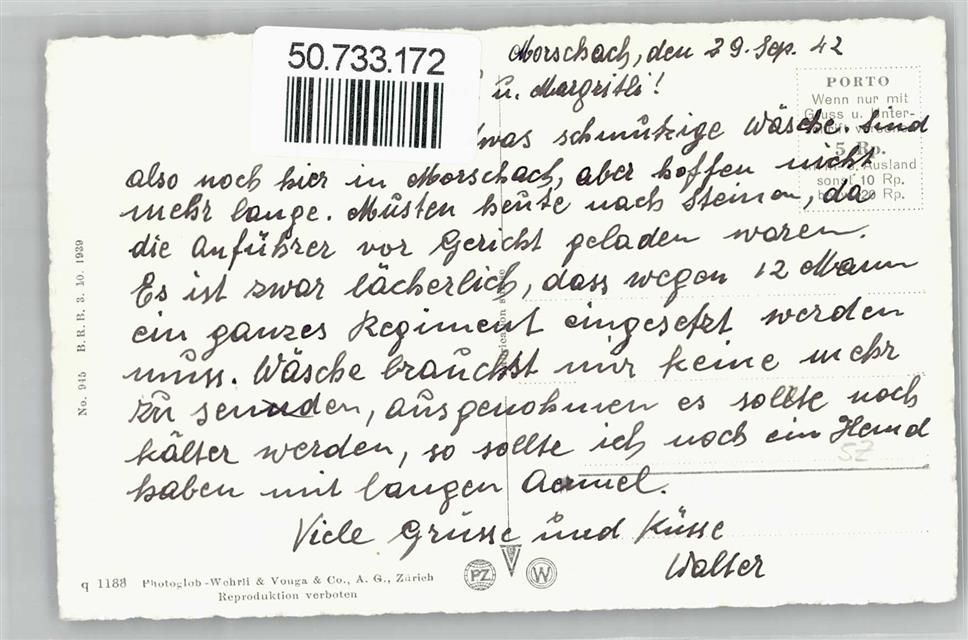 50.733.172
Morschach, den 29. Sep. 42
u. Margritli!
schmutzige Wäsche. Sind
also noch hier in Morschach, aber hoffen nicht
mehr lange. Musten heute nach Steinen, da
die Anführer vor Gericht geladen waren.
Es ist zwar lächerlich, dass wegen 12 Mann
ein ganzes Regiment eingesetzt werden
muss. Wäsche brauchst mir keine mehr
zu senden, ausgenohmen es sollte noch
kälter werden, so sollte ich noch ein Hemd
haben mit langen Aermel.
Viele Grüsse und Küsse
Walter
PORTO
Wenn nur mit
Gruss u. Unter-
5 Rp.
Ausland
sonst 10 Rp.
20 Rp.
SZ
No. 945 B. R. B. 3. 10. 1939
q 1188 Photoglob-Wehrli & Vouga & Co., A. G., Zürich
Reproduktion verboten
PZ
W